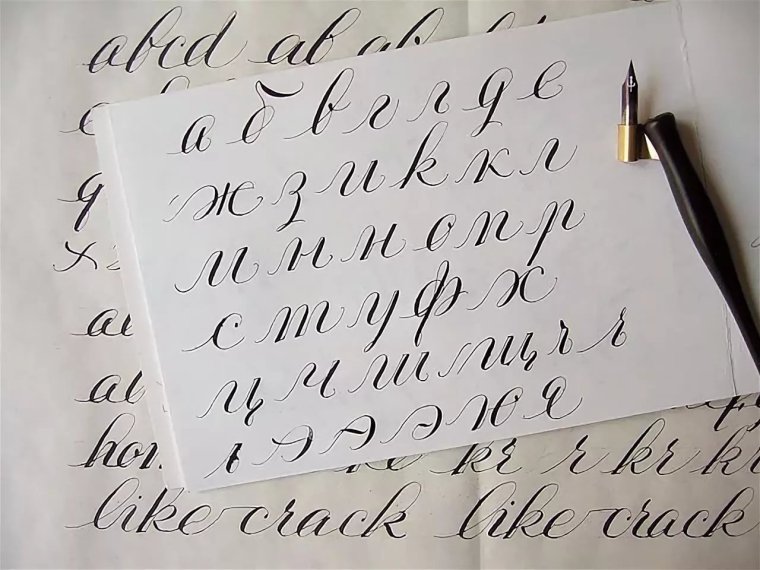 abcd ab ab
а б в г г д е
ж з и к к л
м н н о п р
с т у ф х
ц ч ш щ ъ ь
ь э э э ю я
kr r kr kr
like crack like crack